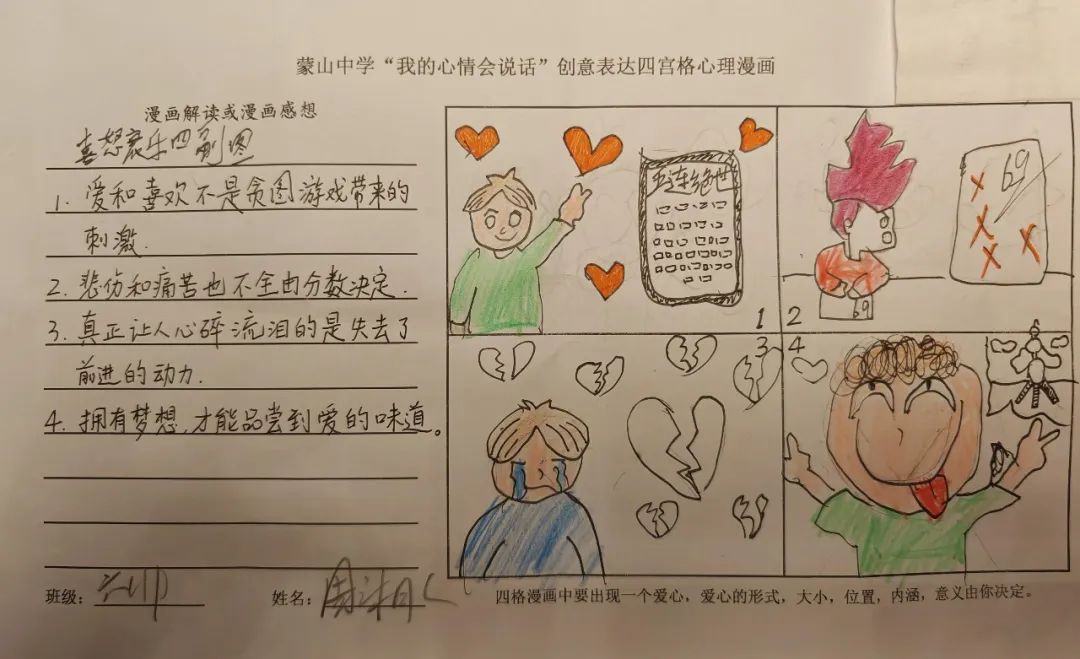 蒙山中学“我的心情会说话”创意表达四宫格心理漫画
漫画解读或漫画感想
喜怒哀乐四副图
1. 爱和喜欢不是贪图游戏带来的
刺激.
2. 悲伤和痛苦也不全由分数决定.
3. 真正让人心碎流泪的是失去了
前进的动力.
4. 拥有梦想,才能品尝到爱的味道。
班级:
姓名: 周
五连绝世
1
69
69
2
3
4
四格漫画中要出现一个爱心，爱心的形式，大小，位置，内涵，意义由你决定。